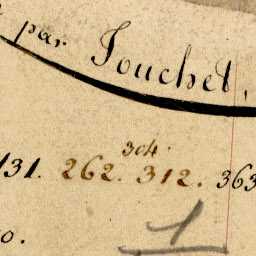 par Touchet,
304.
131. 262. 312. 363